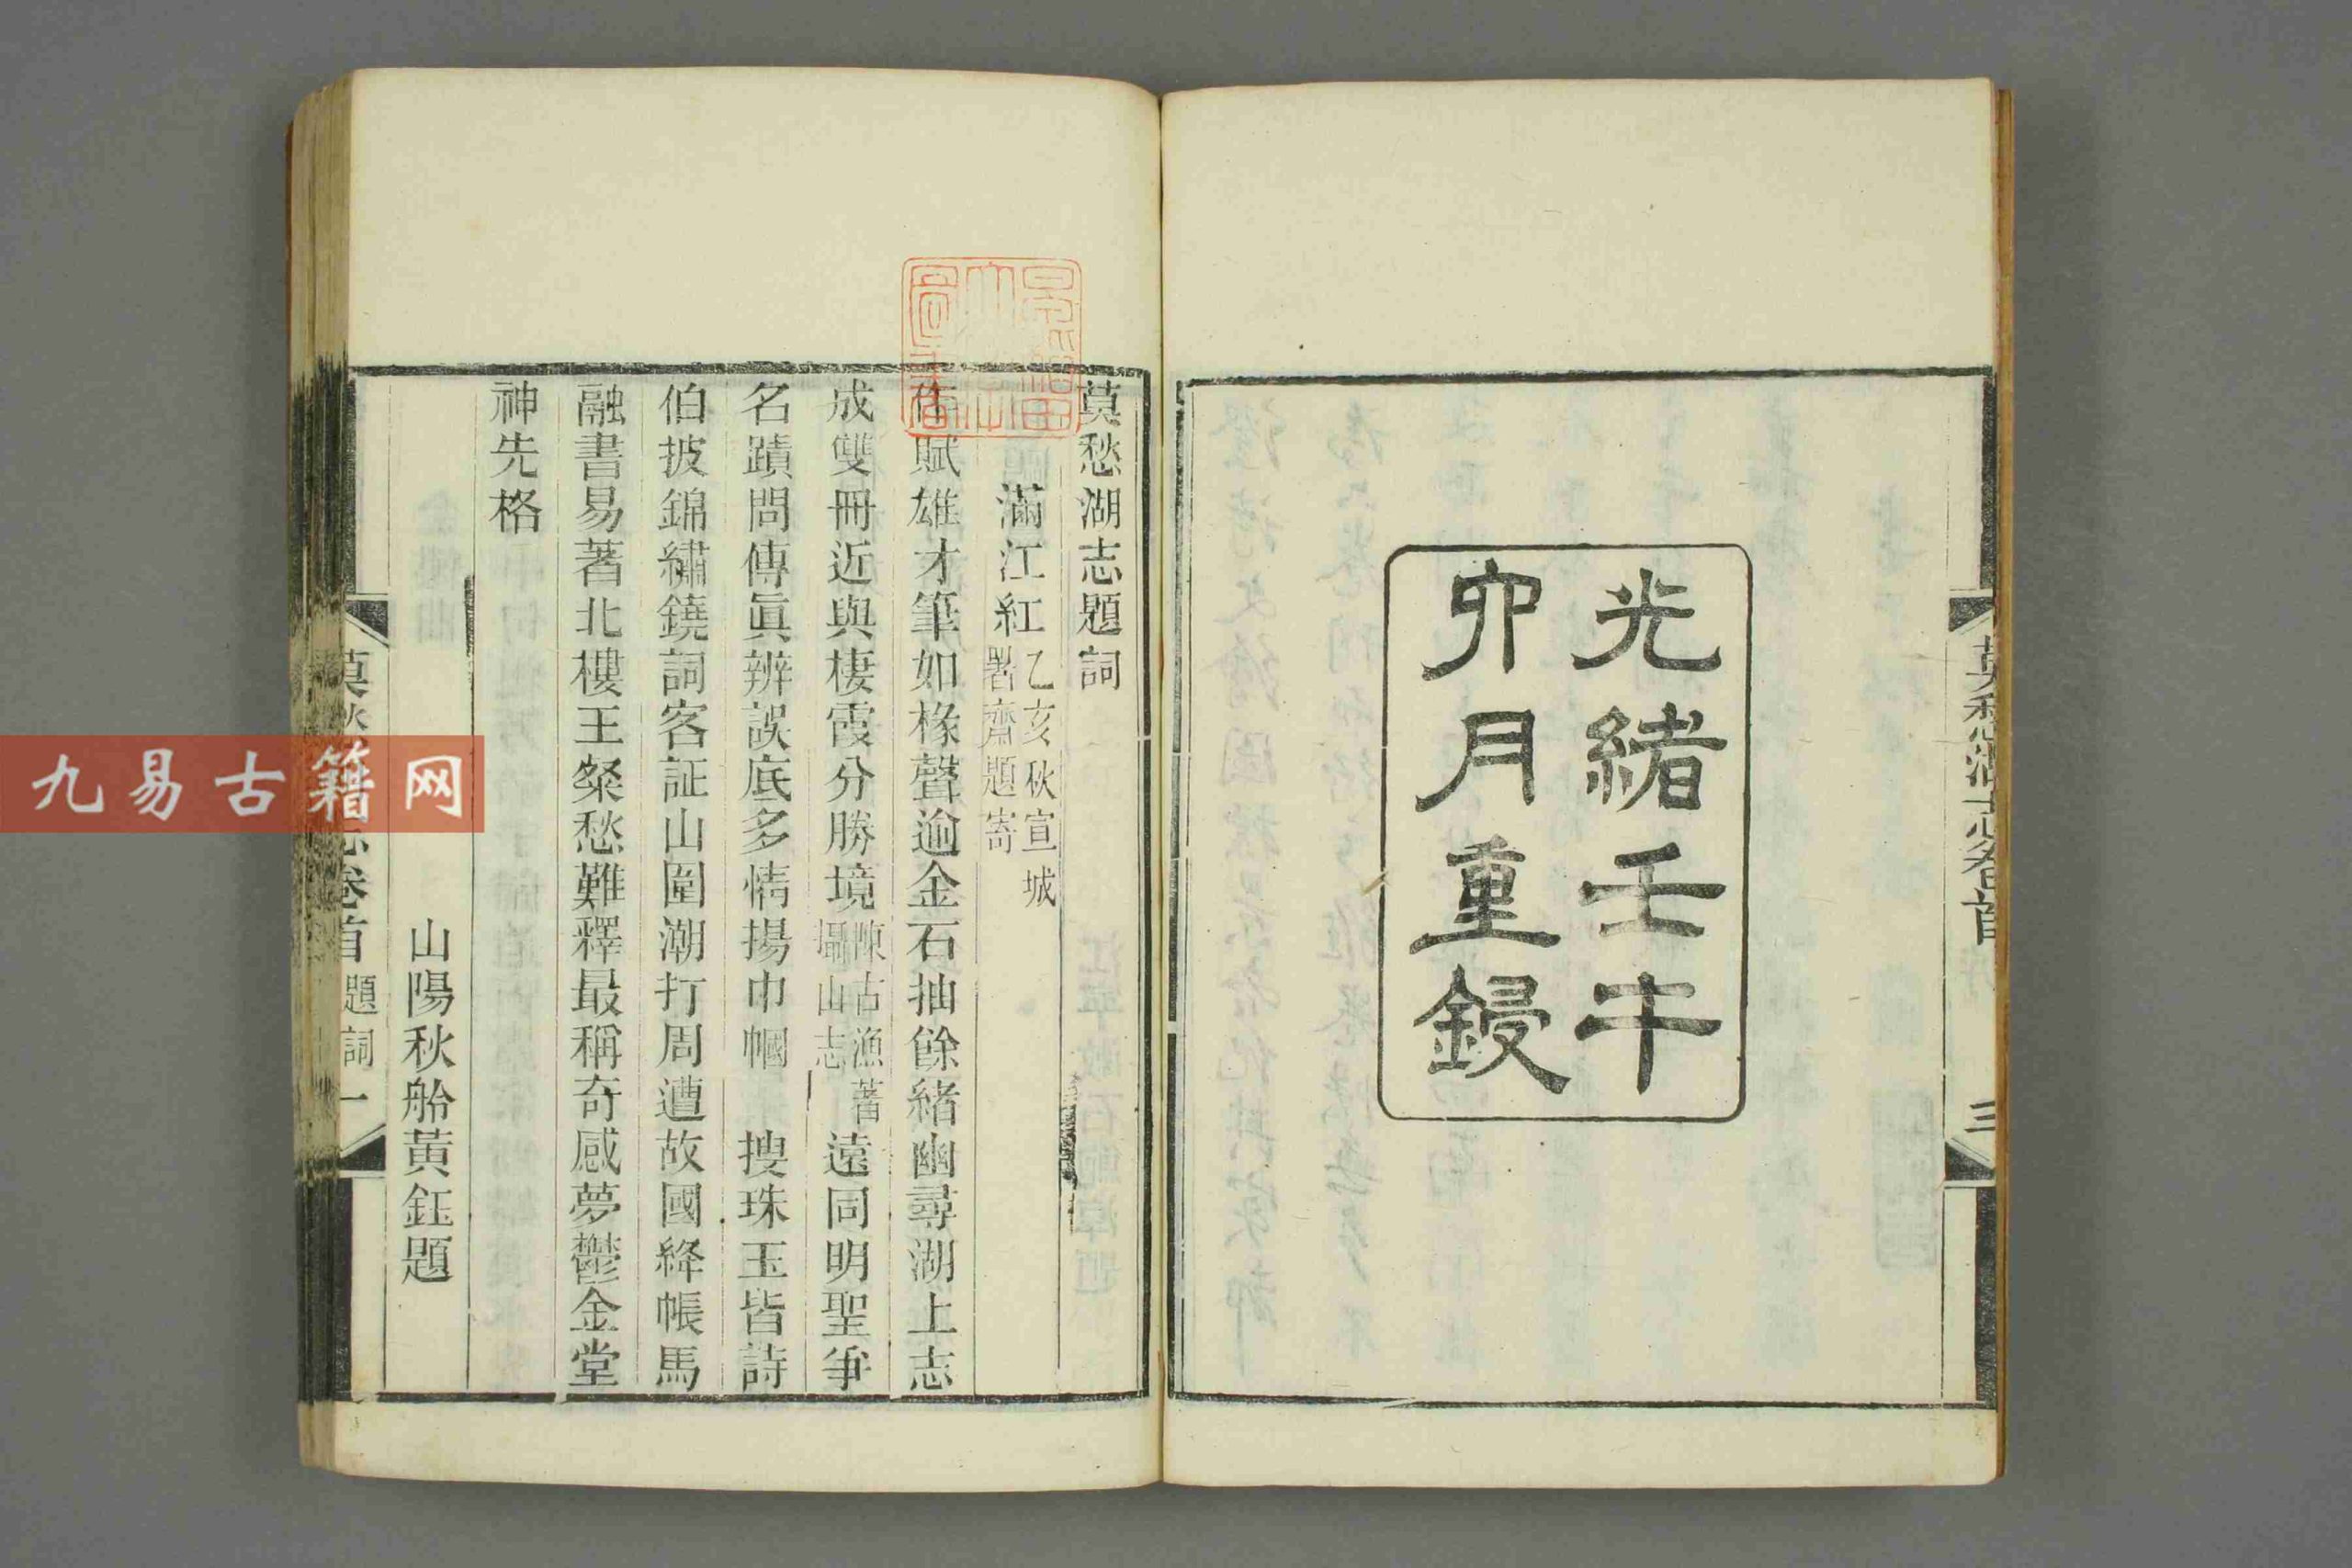 光緒壬午
卯月重鋟
莫愁湖志卷首
三
莫愁湖志題詞
滿江紅 乙亥秋宣城
署齋題寄
作賦雄才筆如椽聲逾金石抽餘緒幽尋湖上志
成雙冊近與棲霞分勝境 陳古漁著
攝山志 遠同明聖爭
名蹟問傳眞辨誤底多情揚巾幗 搜珠玉皆詩
伯披錦繡鐃詞客証山圍潮打周遭故國絳帳馬
融書易著北樓王粲愁難釋最稱奇感夢鬱金堂
神先格
山陽秋舲黃鈺題
莫愁湖志卷首 題詞 一
九易古籍网